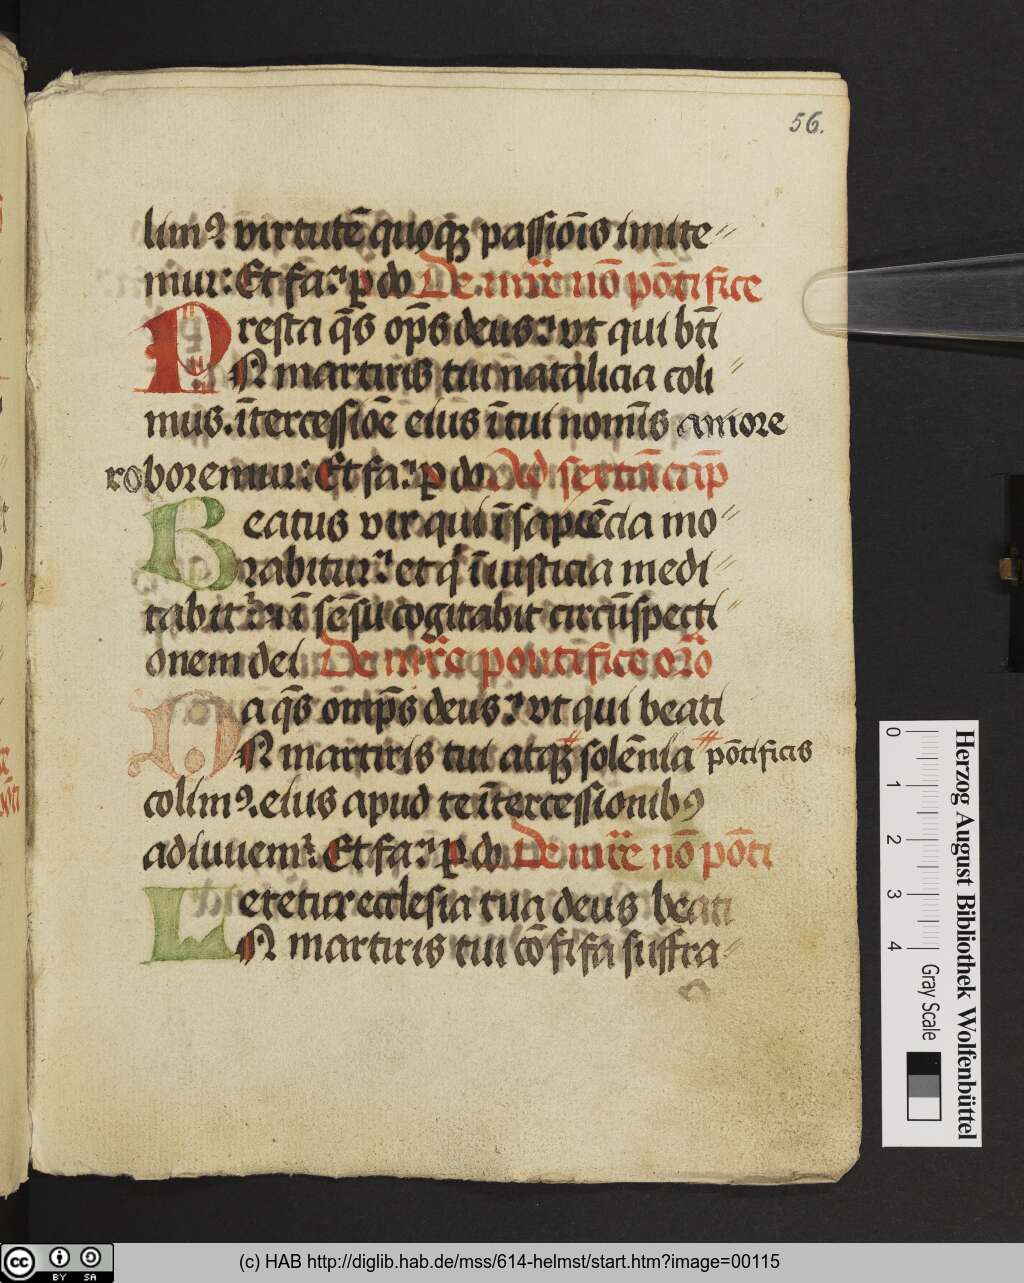 56.
limꝰ virtutē quoqꝫ passiōis imite⸗
mur: Et fa.ͬ p do De mr̄e nō pōtifice
Presta q̄s op̄s deus: vt qui bt̄i
N martiris tui natalicia coli⸗
mus. īt̄cessiōe eius ī tui nomīs amore
roboremur: Et fa.ͬ p do Ad sextā cap̄
Beatus vir qui ī sapiēcia mo⸗
rabitur: et qͥ ī iusticia medi⸗
tabit᷑: ⁊ ī sēsu cogitabit circūspecti⸗
onem dei De mr̄e pontifice or̄o
Da q̄s omp̄s deus: vt qui beati
N martiris tui atqꝫ solēnia pōtificis
colimꝰ. eius apud te īt̄cessionibꝰ
adiuuem᷑: Et fa.ͬ p do De mr̄e nō pōti
Letetur ecclesia tua deus beati
N martiris tui cōfisa suffra⸗
0 1 2 3 4
Gray Scale
Herzog August Bibliothek Wolfenbüttel
cc BY SA
(c) HAB http://diglib.hab.de/mss/614-helmst/start.htm?image=00115